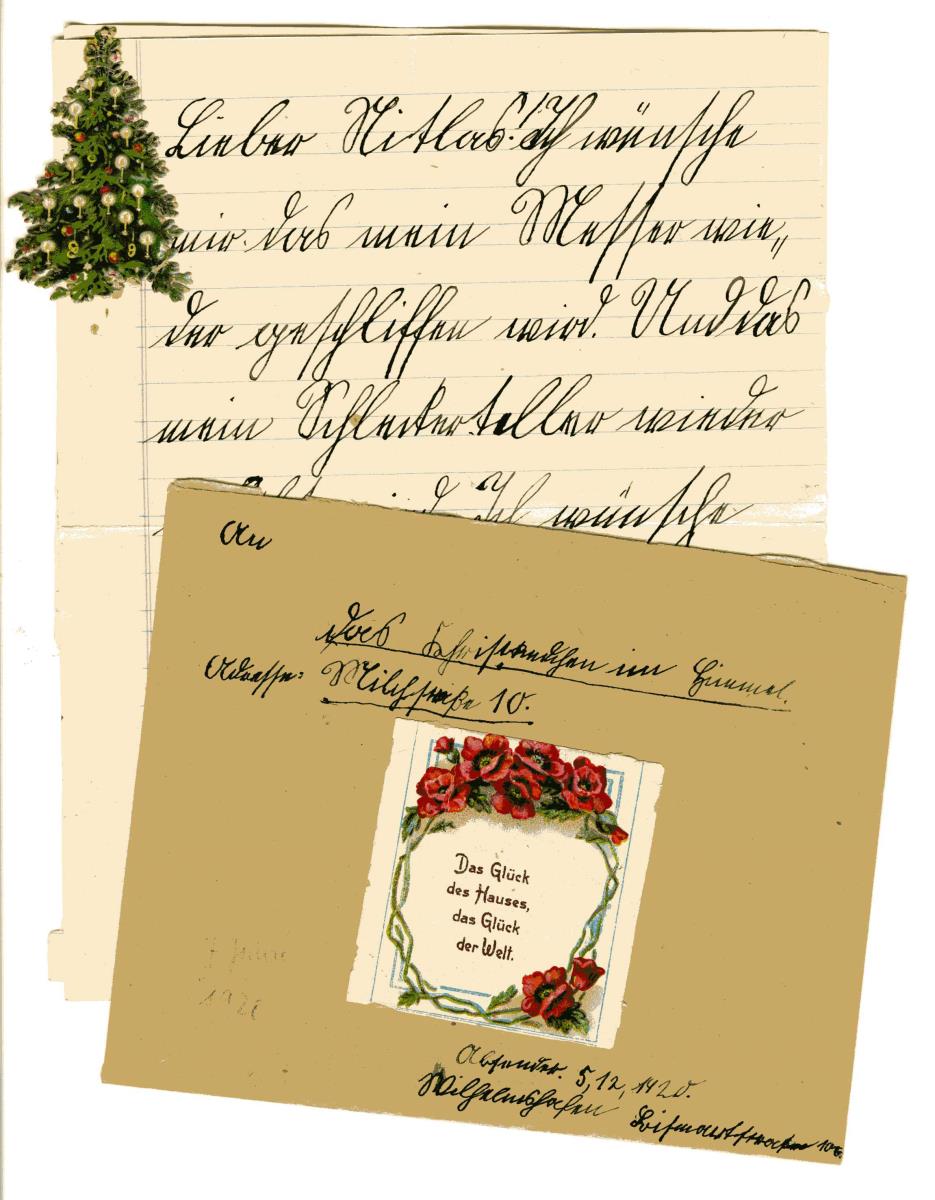 Lieber Niklas! Ich wünsche
mir das mein Messer wie„
der geschliffen wird. Und das
mein Schleckerteller wieder
Ich wünsche
An
das Christ im Himmel.
Adresse: Milchstraße 10.
Das Glück
des Hauses,
das Glück
der Welt.
7 Jahre
Absender. 5,12,1920.
Wilhelmshafen Bismarkstraße